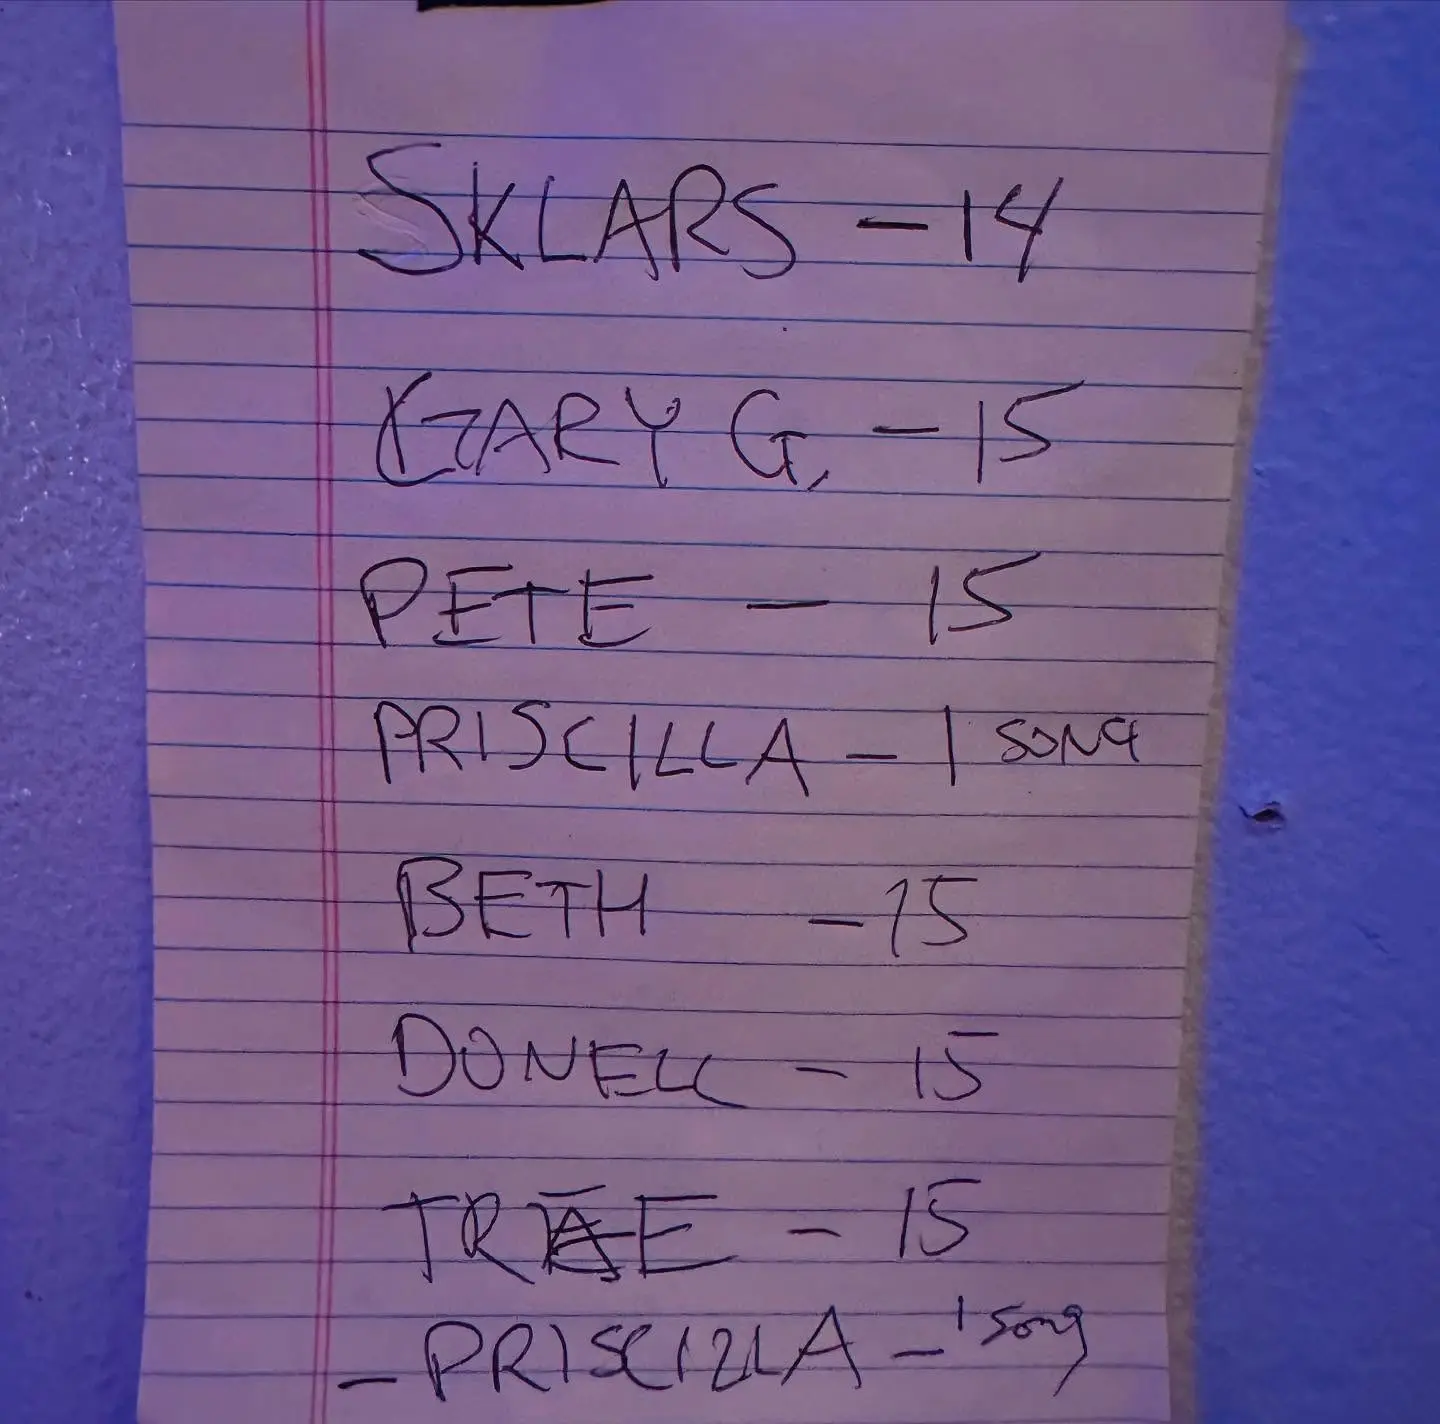 SKLARS - 14
GARY G. - 15
PETE - 15
PRISCILLA - 1 SONG
BETH - 15
DONELL - 15
TRAE - 15
- PRISCILLA - 1 song